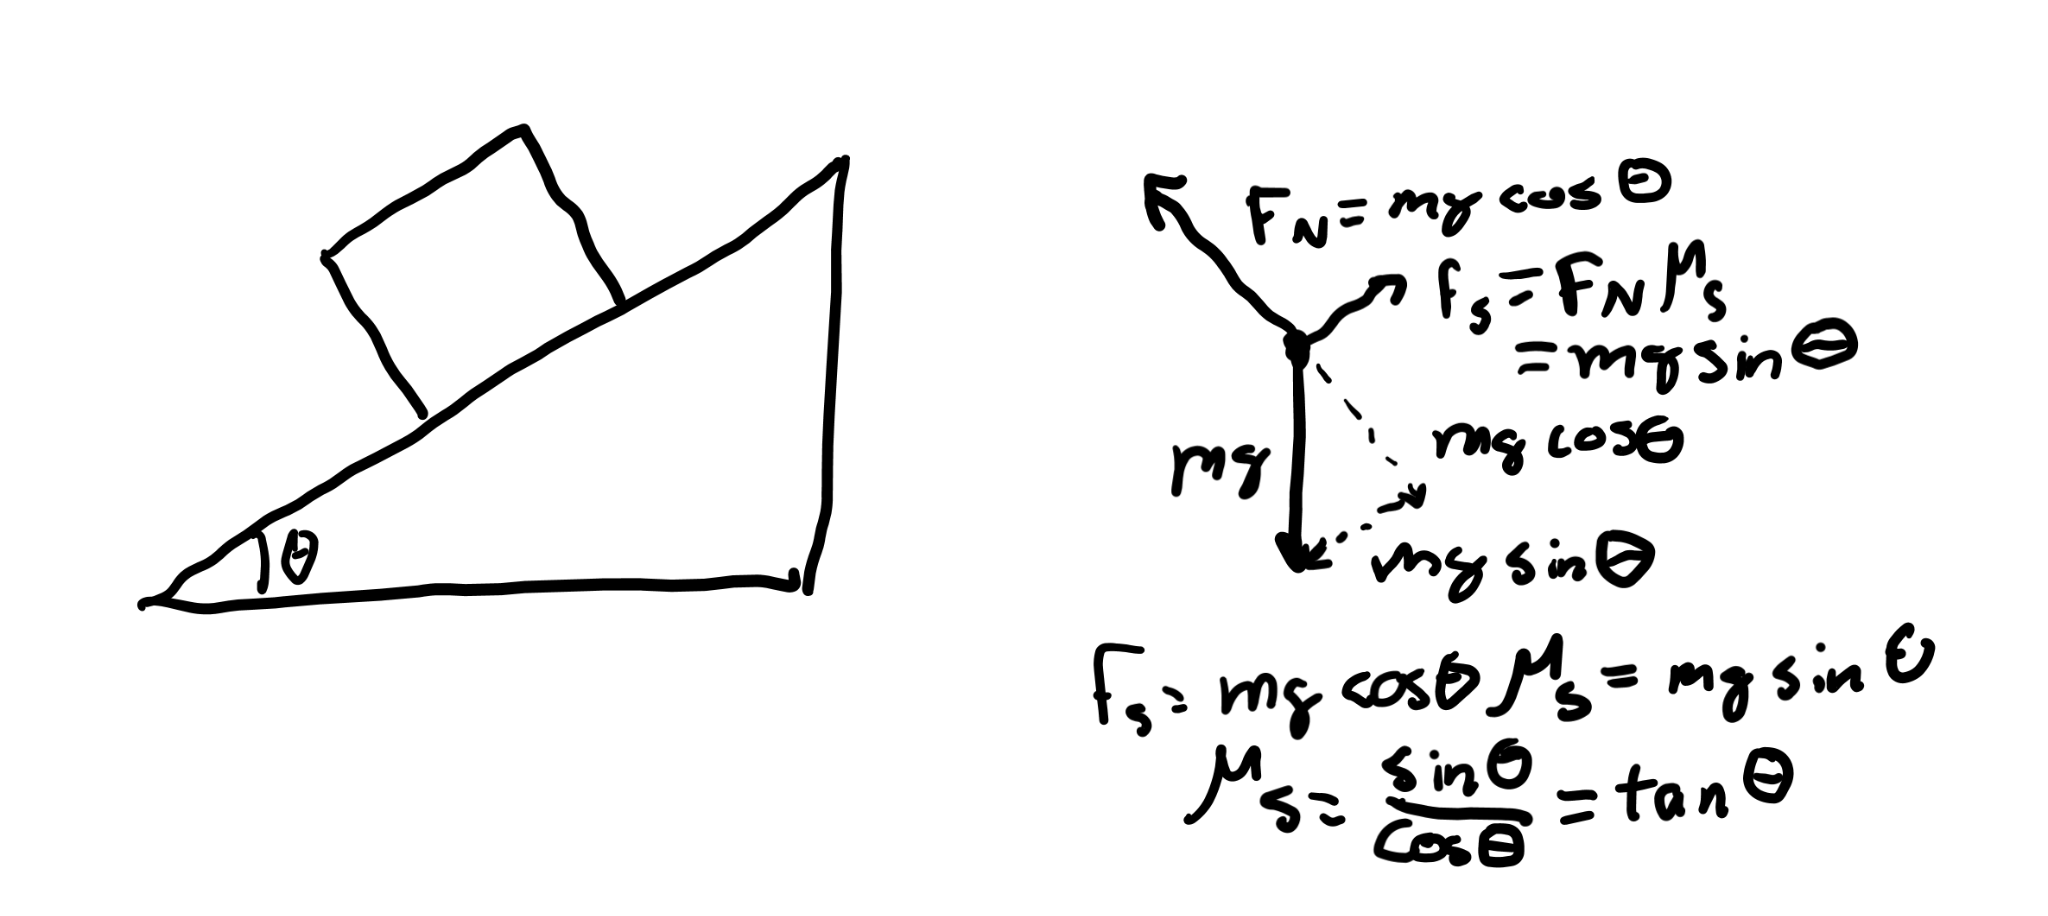 θ
F_N = mg cos θ
f_s = F_N μ_s
= mg sin θ
mg cosθ
mg
mg sinθ
F_s = mg cosθ μ_s = mg sin θ
μ_s = sinθ/cosθ = tan θ